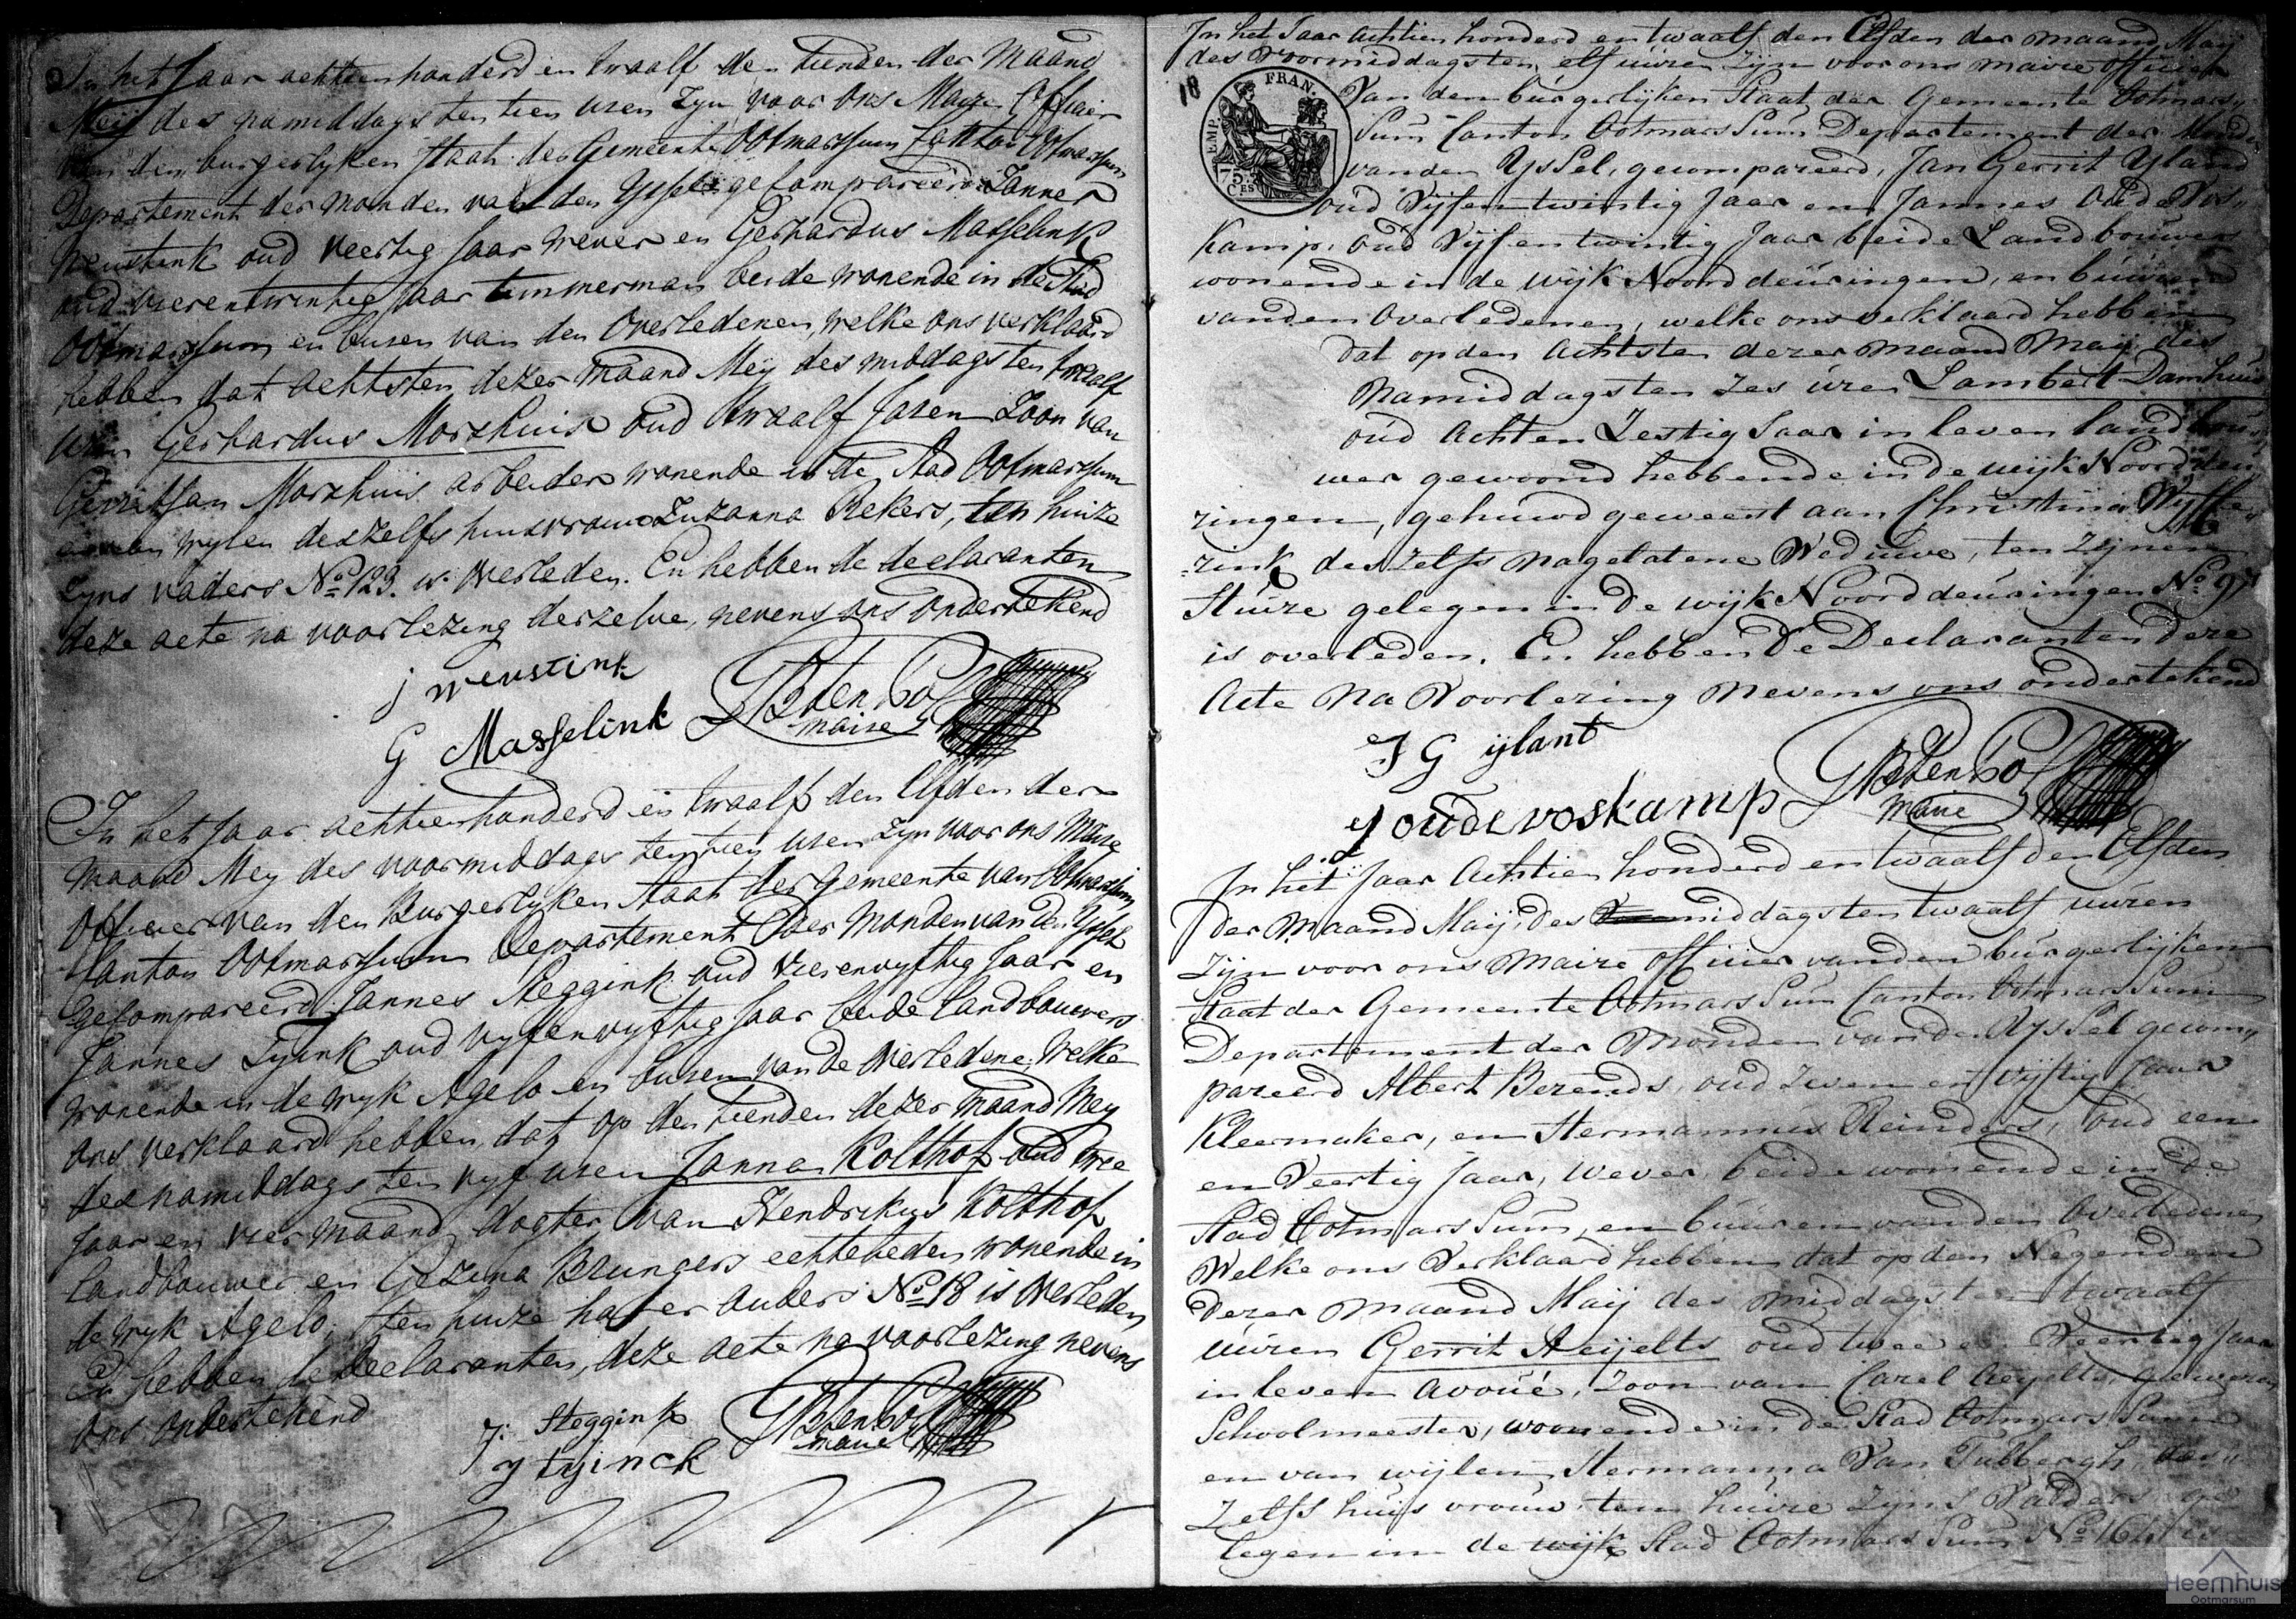 In het Jaar achttienhonderd en twaalf den tienden der Maand
Meij des namiddags ten tien uren zyn voor ons Maire Officier
van den burgerlyken staat der Gemeente Ootmarssum Canton Ootmarssum
Departement der monden van den Yssel gekompareerd Jannes
Wenstink oud veertig Jaar wever en Gerhardus Masselink
oud vierentwintig Jaar timmerman beide wonende in de Stad
Ootmarssum en buren van den Overledenen, welke ons verklaard
hebben dat achtsten dezer maand Meij des middags ten twaalf
uren Gerhardus Morshuis oud twaalf Jaren Zoon van
Gerritjan Morshuis arbeider wonende in de Stad Ootmarssum
en van wylen deszelfs huisvrouw Zuzanna Rekers, ten huize
zyns vaders No 123. is Overleden. En hebben de declaranten
deze acte na voorlezing derzelve, nevens ons Ondertekend
j wenstink
G Masselink
GB ten Pol
maire
In het Jaar achttienhonderd en twaalf den Elfden der
maand Mey des voormiddags ten tien uren zyn voor ons Maire
Officier van den Burgerlyken Staat der Gemeente van Ootmarssum
Canton Ootmarssum Departement der Monden van den Yssel
gekompareerd Jannes Steggink oud vierenvyftig Jaar en
Jannes Tyink oud vyfenvyftig Jaar beide landbouwers
wonende in de wyk Agelo en buren van de Overledene, welke
ons verklaard hebben, dat op den tienden dezer maand Mey
des namiddags ten vyf uren Janna Kolthof oud twee
Jaar en vier maand, dogter van Hendrikus Kolthof
landbouwer en Gezina Brungers echtelieden wonende in
de wyk Agelo, ten huize harer ouders No 18 is Overleden
En hebben de declaranten, deze acte na voorlezing nevens
ons ondertekend
J: Steggink
J tyinck
GB ten Pol
maire
In het Jaar Achtien honderd en twaalf den Elfden der maand Maij
des Voormiddags ten elf uuren zijn voor ons maire officier
18
EMP. FRAN.
75 Ces
van den burgerlyken Staat der Gemeente Ootmars
Sum Canton Ootmars Sum Departement der Monden
van den Ys Sel, gecompareerd, Jan Gerrit Yland
oud Vijfentwintig Jaar en Jannes Oude Vos
kamp, oud Vijfentwintig Jaar beide Landbouwers
woonende in de wijk Noorddeuringen, en buuren
vanden Overledenen, welke ons verklaard hebben
dat op den Achtsten dezer maand Maij des
Namiddags ten Zes uren Lambert Damhuis
oud Acht en Zestig Jaar in leven landbou
wer gewoond hebbende in de wijk Noordeu
ringen, gehuwd geweest aan Christina Wyffe
rink deszelfs nagelatene Weduwe, ten zijnen
Huize gelegen in de wijk Noorddeuringen No 97
is overleden. En hebben de Declaranten deze
Acte Na Voorlezing Nevens ons ondertekend
J G ijlant
J oude voskamp
GB ten Pol
Maire
In het Jaar Achtien honderd en twaalf den Elfden
der Maand Maij, des middags ten twaalf uuren
Zijn voor ons Maire officier vanden burgerlijken
Staat der Gemeente Ootmars Sum Canton Ootmars Sum
Departement der Monden van den Ys Sel gecom
pareerd Albert Berends, oud Zeven en Vijftig Jaar
Kleermaker, en Hermannus Reinders, oud een
en Veertig Jaar, Wever beide wonende in de
Stad Ootmars Sum, en buuren vanden Overledenen
Welke ons Verklaard hebben dat op den Negenden
Dezer maand Maij des middags ten twaalf
uuren Gerrit Aeijelts oud twee en Veertig Jaar
in leven avoué, Zoon van Carel Aeyelts, geweren
Schoolmeester, woonende in de Stad Ootmars Sum
en van wijlen Hermanna Van Tulbergh, des
Zelfs huis vrouw, ten huize zijns Vaders ge
legen in de wijk Stad Ootmars Sum No 164 is
Heemhuis
Ootmarsum